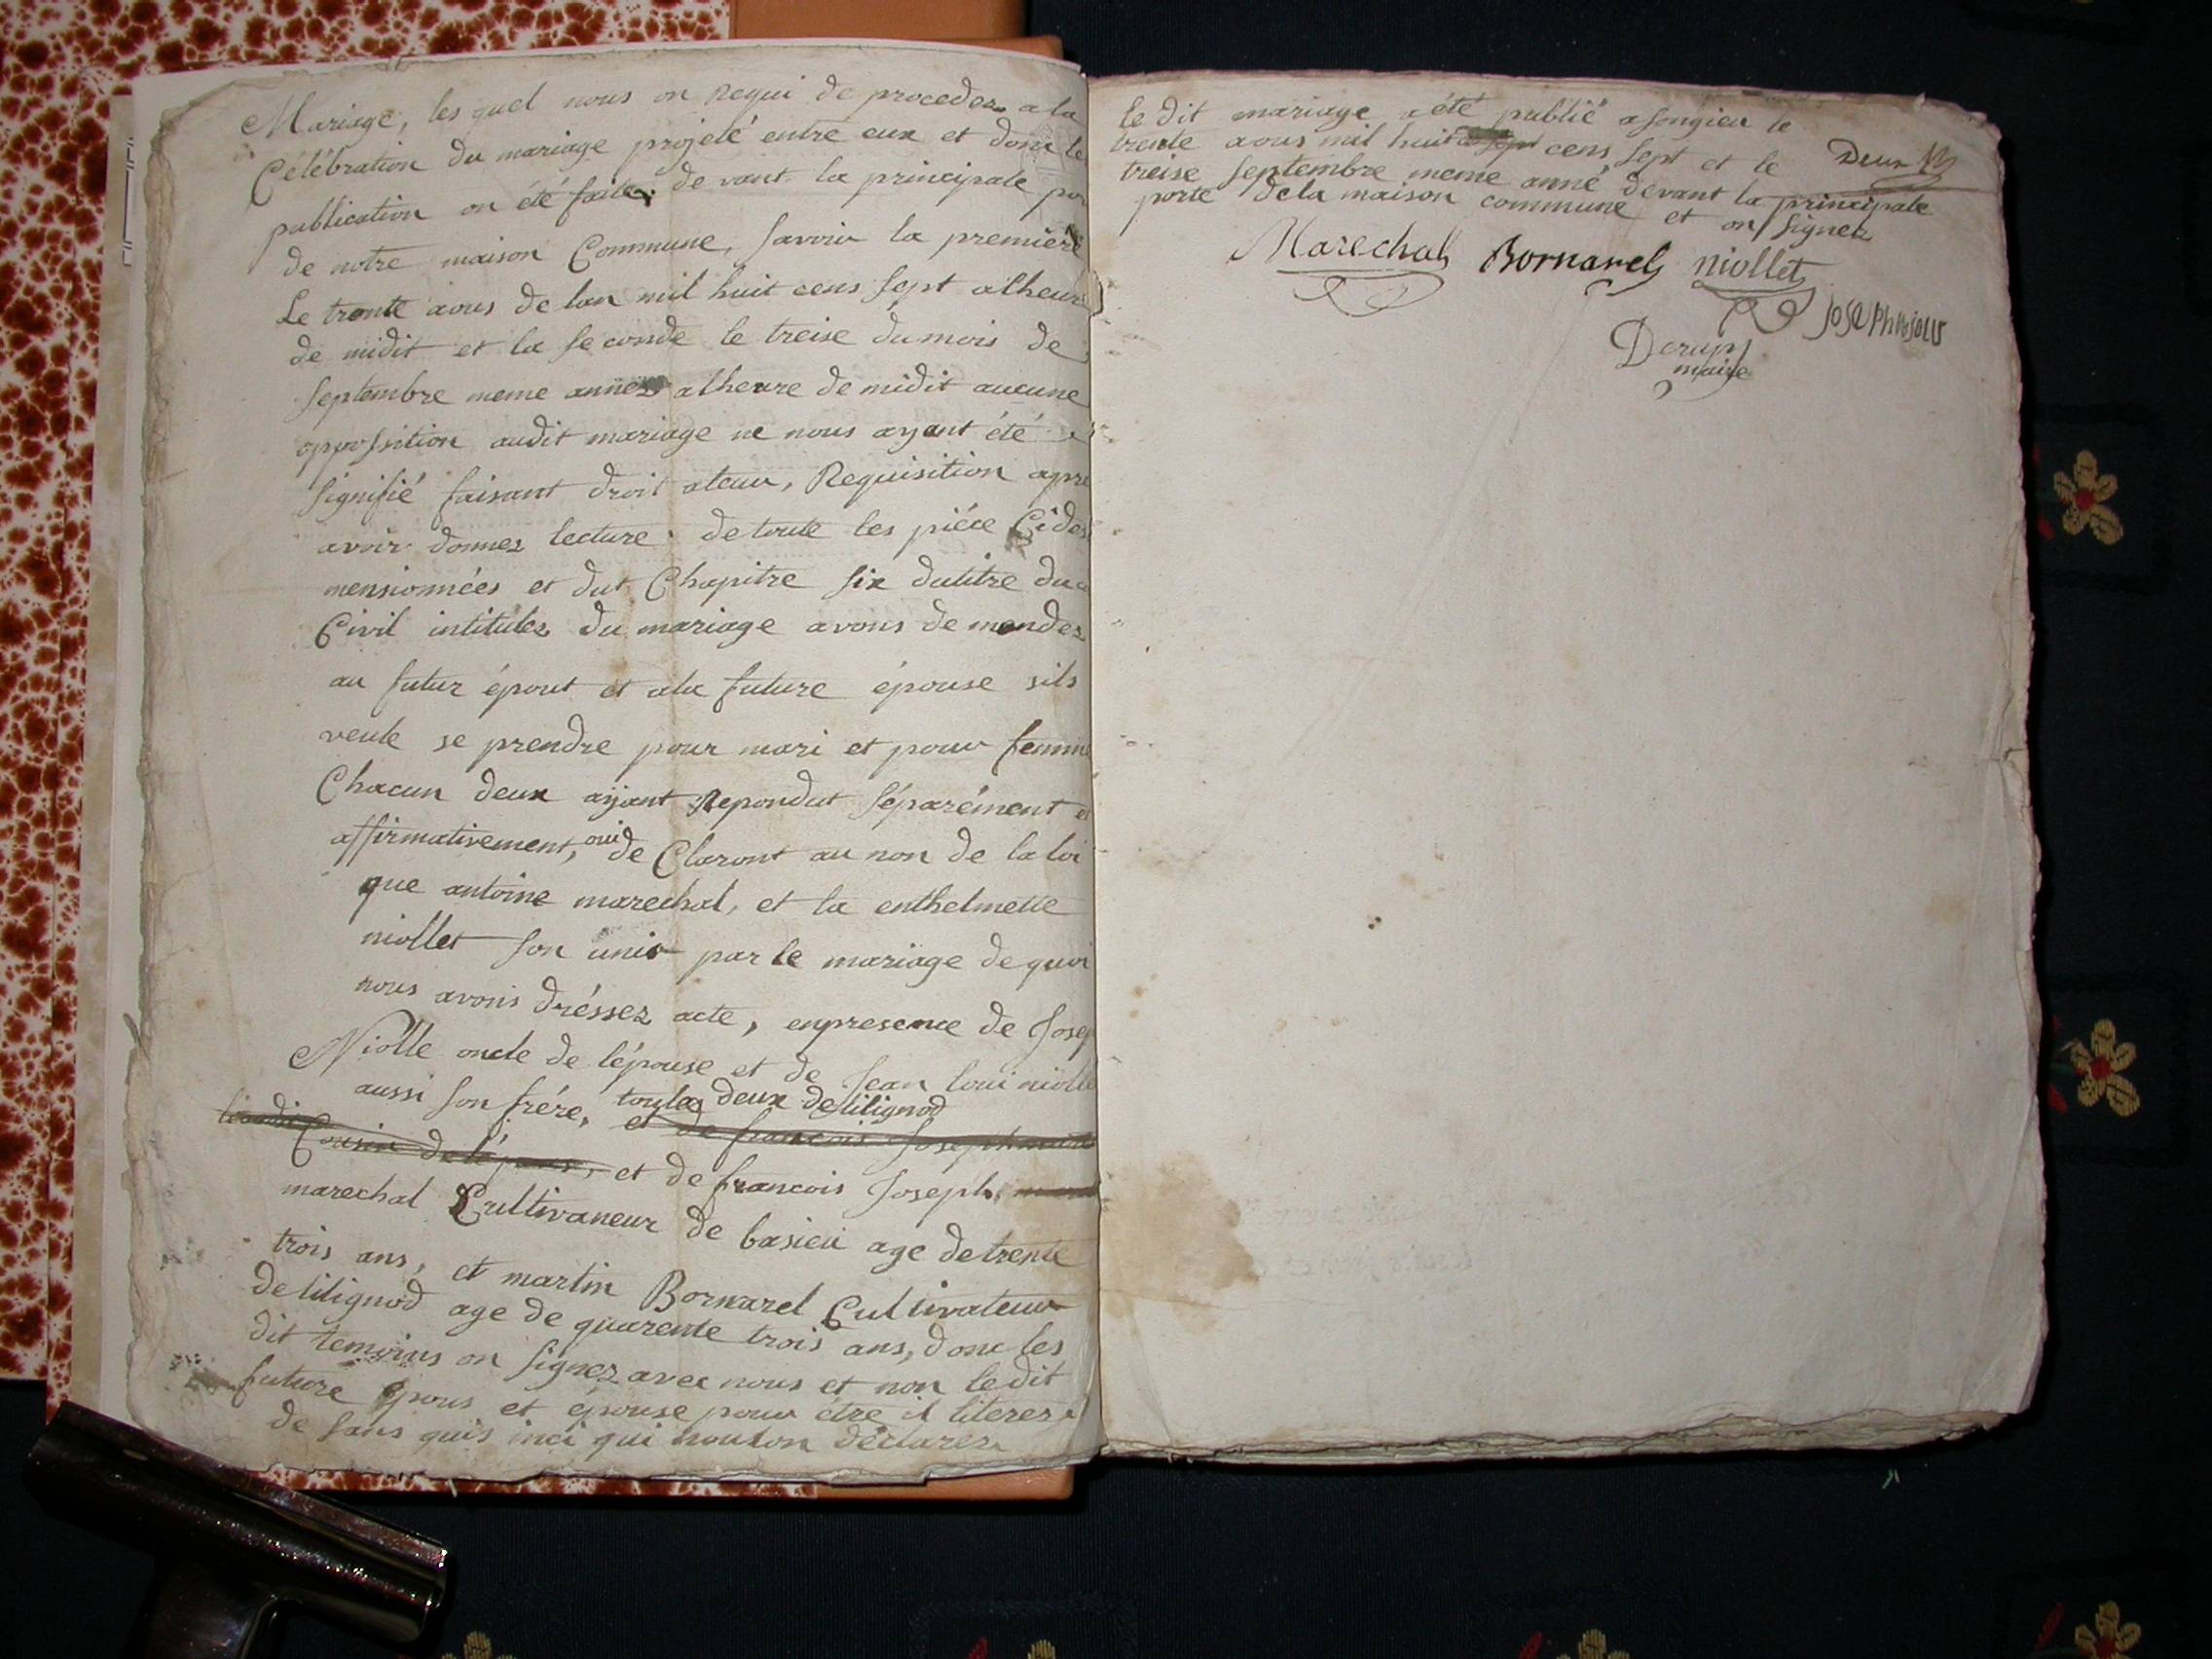 Mariage, les quel nous on Requi de proceder a la
Célébration du mariage projeté entre eux et donc le
publication on été faite de vant la principale por
de notre maison Commune, savoir la premiere
Le trente aous de lan mil huit cens sept alheure
de midit et la seconde le treise du mois de
septembre meme annez alheure de midit aucune
opposition audit mariage ne nous ayant été
signifié faisant droit aleur, Requisition apre
avoir donnez lecture de toute les piéce Cides
mensionnées et dut Chapitre six dutitre du
Civil intitulez du mariage avons demendez
au futur épout et ala future épouse sils
veule se prendre pour mari et pour femme
Chacun deux ayant Repondut séparément et
affirmativement, oui de Claront au non de la loi
que antoine marechal, et la enthelmette
niollet son unis par le mariage de quoi
nous avons dréssez acte, enpresence de Josep
Niolle oncle de lépouse et de Jean loui niolle
aussi son frére, toules deux de lilignod
et de francois Joseph
Cousin de lépous, et de francois Joseph
marechal Cultivaneur de basieu age de trente
trois ans, et martin Bornarel Cultivateur
de lilignod age de quarente trois ans, donc les
dit temoins on signez avec nous et non ledit
future épous et épouse pour étre il literez
de sans quis inci qui nouson déclarez
le dit mariage a été publié a songieu le
trente aous mil huit cens sept et le
treise septembre meme anné devant la principale
porte dela maison commune et on signez
Deux
Marechal Bornarel niollet
Joseph niolle
maire